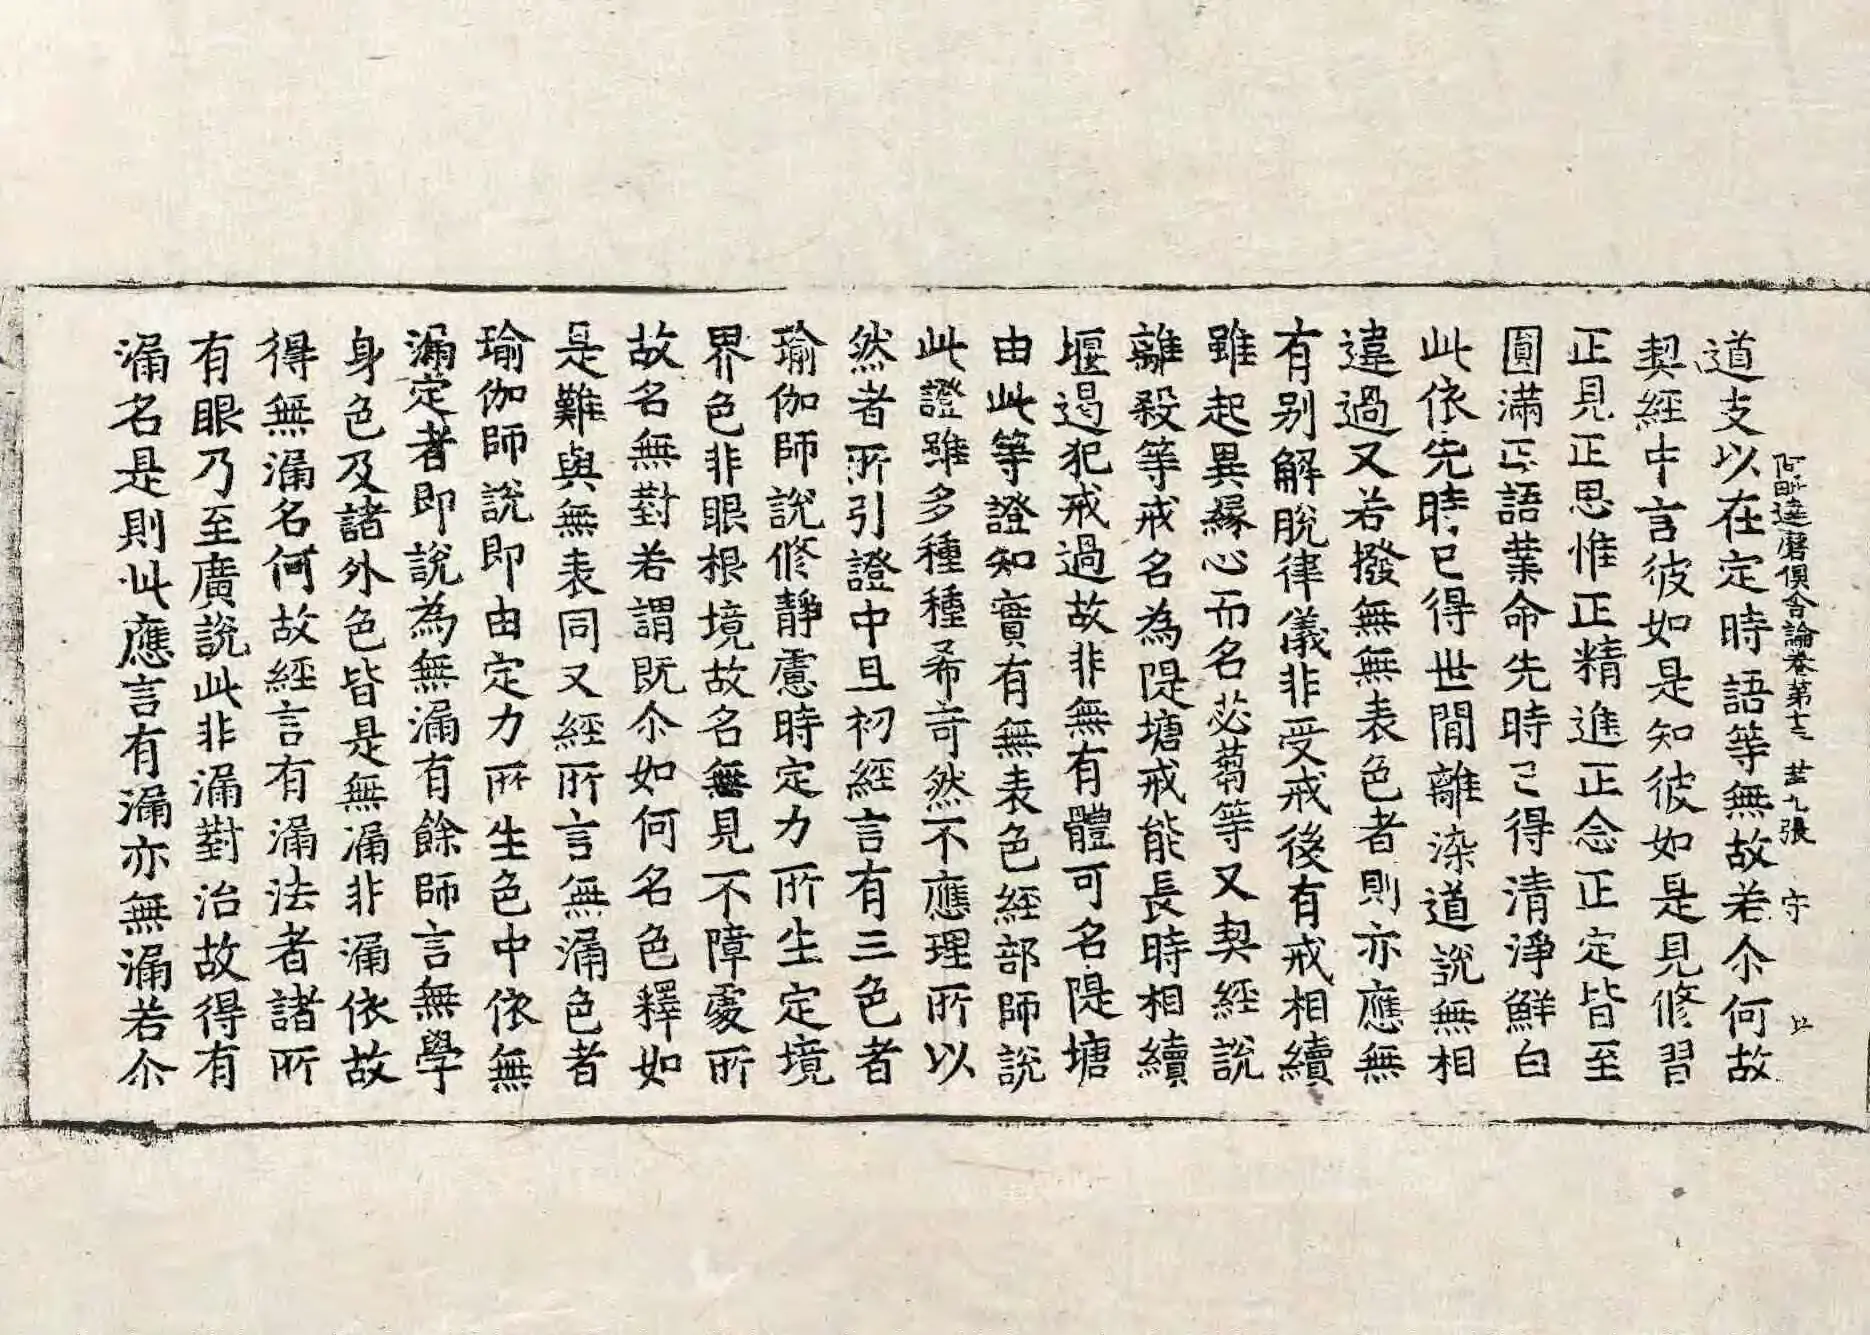 阿毗達磨俱舍論卷第十三 苐九張 守
道支以在定時語等無故若尒何故
契經中言彼如是知彼如是見修習
正見正思惟正精進正念正定皆至
圓滿正語業命先時已得清淨鮮白
此依先時已得世間離染道說無相
違過又若撥無無表色者則亦應無
有別解脫律儀非受戒後有戒相續
雖起異緣心而名苾芻等又契經說
離殺等戒名為隄塘戒能長時相續
堰遏犯戒過故非無有體可名隄塘
由此等證知實有無表色經部師說
此證雖多種種希奇然不應理所以
然者所引證中且初經言有三色者
瑜伽師說修靜慮時定力所生定境
界色非眼根境故名無見不障處所
故名無對若謂既尒如何名色釋如
是難與無表同又經所言無漏色者
瑜伽師說即由定力所生色中依無
漏定者即說為無漏有餘師言無學
身色及諸外色皆是無漏非漏依故
得無漏名何故經言有漏法者諸所
有眼乃至廣說此非漏對治故得有
漏名是則此應言有漏亦無漏若尒